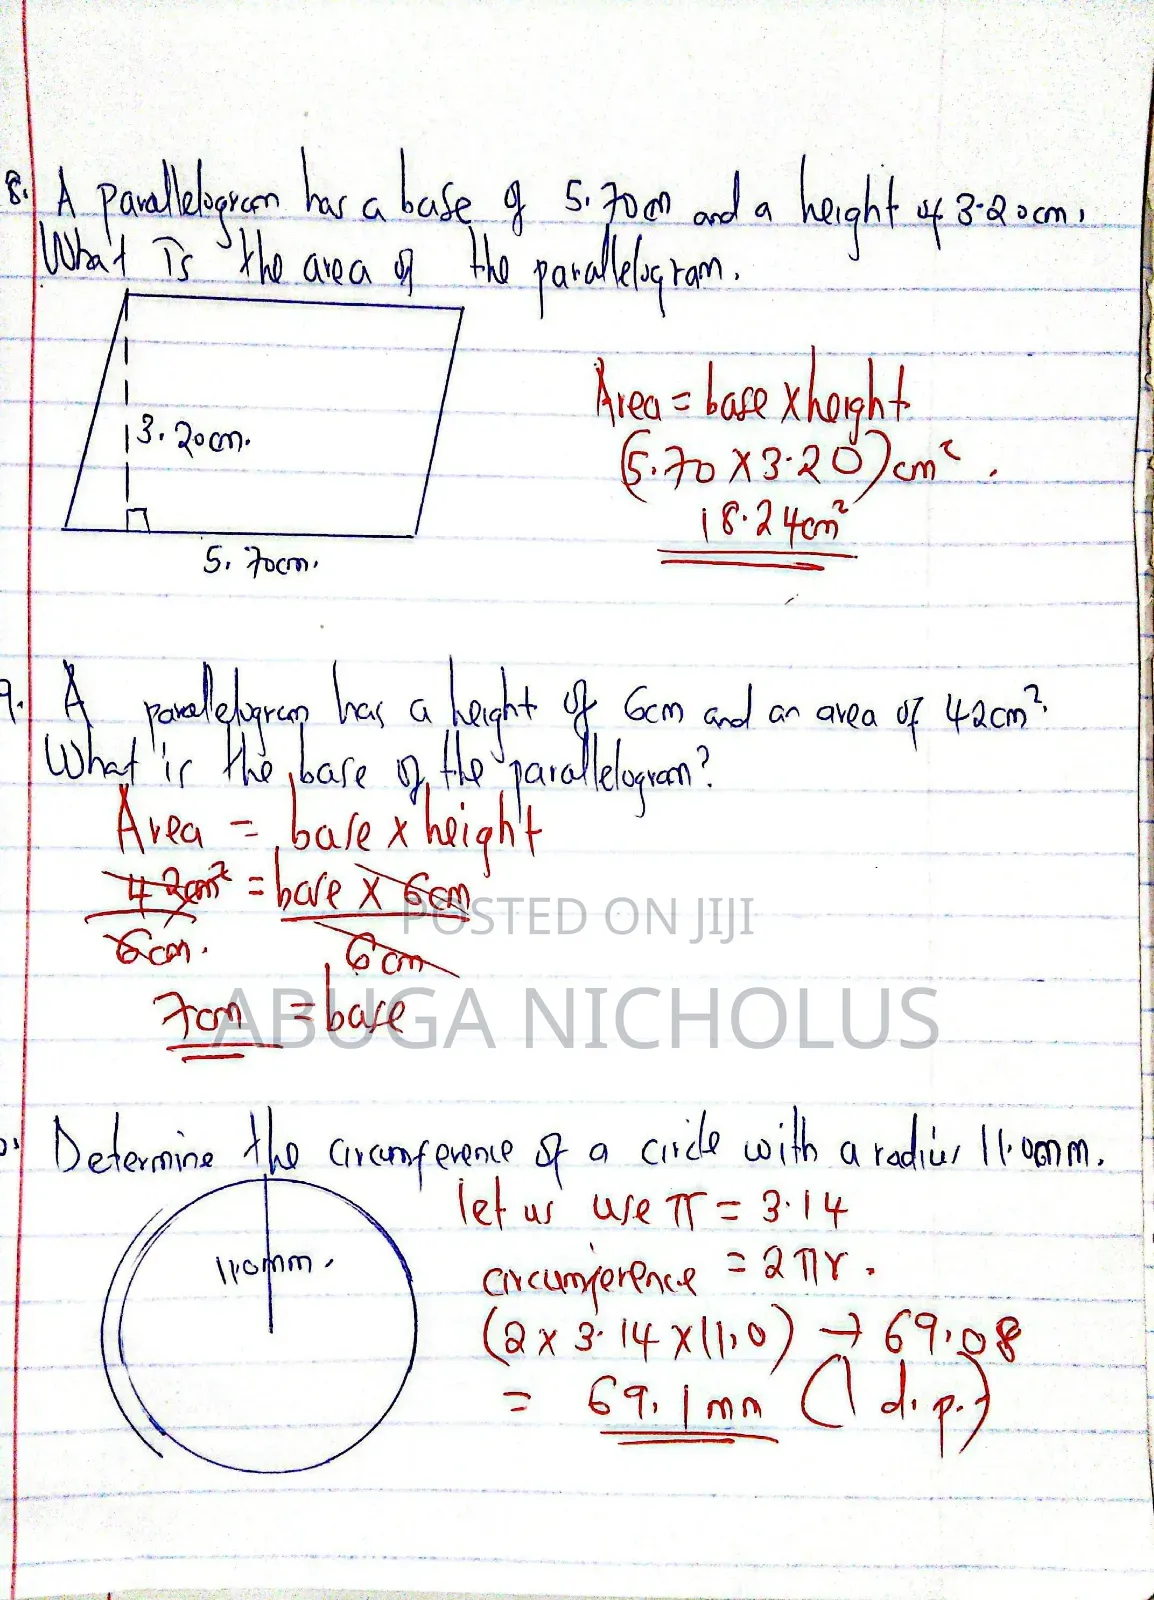 8. A parallelogram has a base of 5.70cm and a height of 3.20cm.
What is the area of the parallelogram.
3.20cm.
5.70cm.
Area = base x height
(5.70 x 3.20)cm²
18.24cm²
9. A parallelogram has a height of 6cm and an area of 42cm².
What is the base of the parallelogram?
Area = base x height
42cm² = base x 6cm
6cm. 6cm
7cm = base
POSTED ON JIJI
ABUGA NICHOLUS
Determine the circumference of a circle with a radius 11.0mm.
11.0mm.
let us use π = 3.14
circumference = 2πr.
(2 x 3.14 x 11.0) → 69.08
= 69.1mm (1 d.p.)